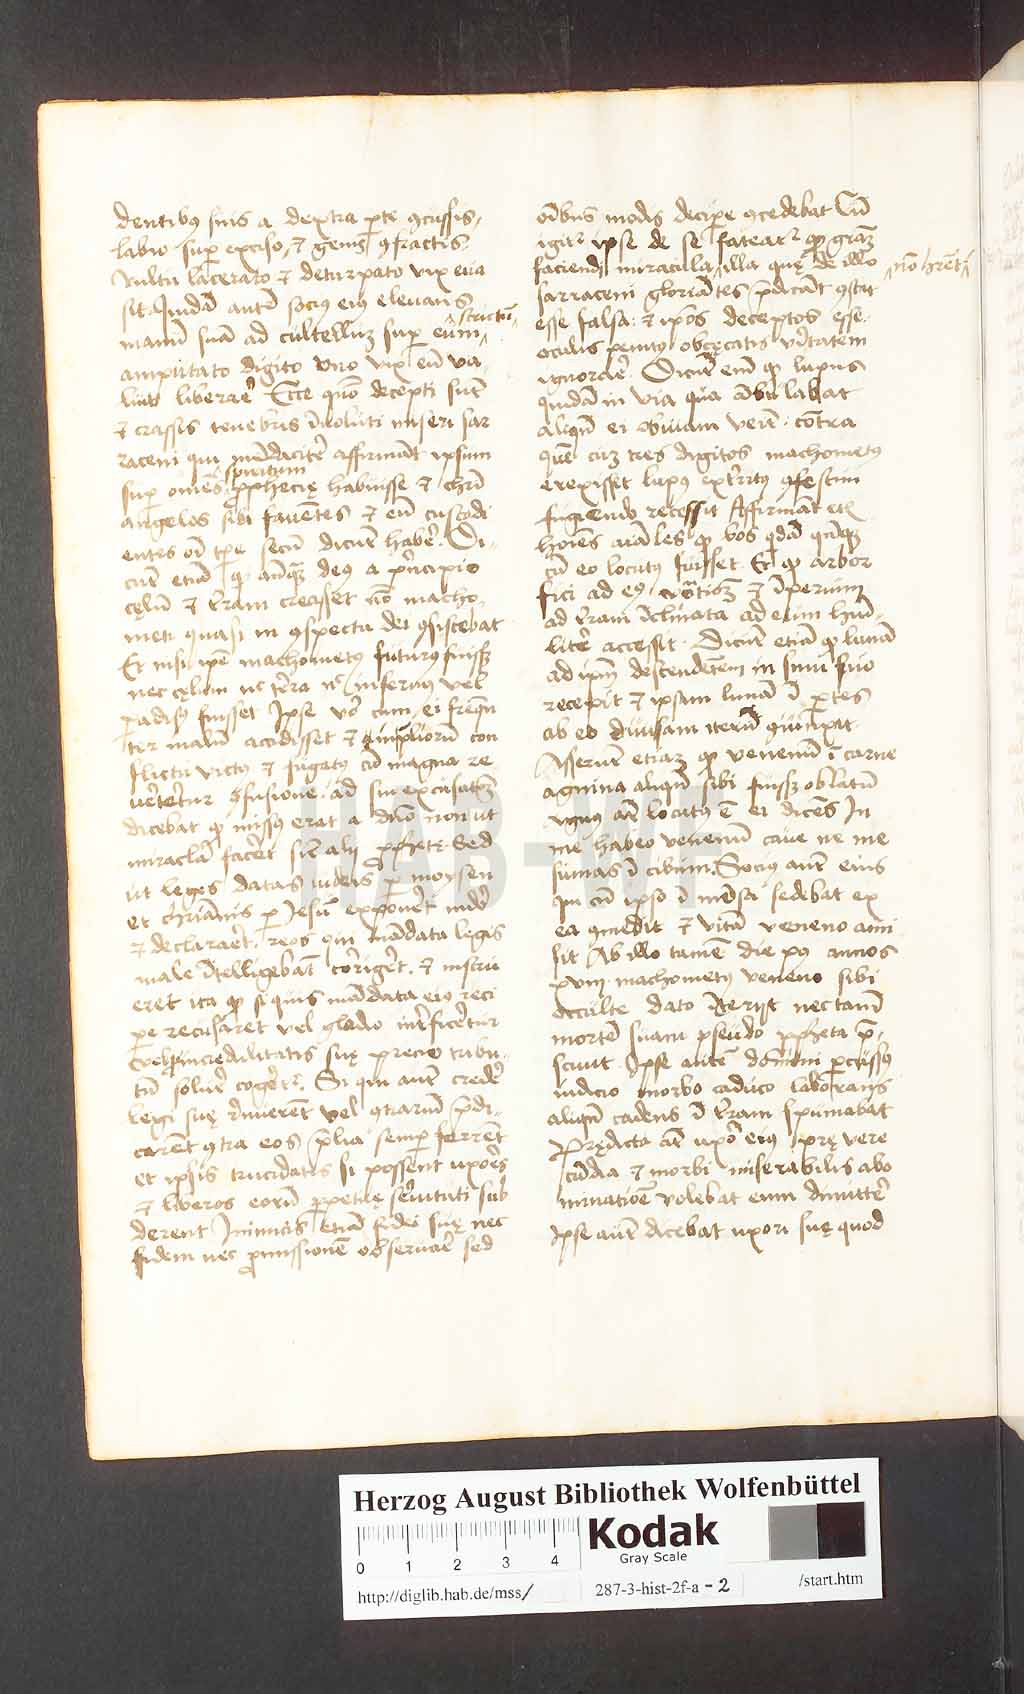 dentibus suis a dextra parte concussis,
labio superiori exciso, et genis confractis
vultu lacerato et deturpato vix eua
sit. Quidam autem socius eius elevans
manum suam ad cultellum super eum strictum
amputato digito uno vix eum va-
luit liberare. Ecce quomodo decepti sunt
et crassis tenebris involuti miseri sar
raceni qui mendaciter affirmant ipsum
super omnes spiritum prophecię habuisse et
angelos sibi faventes et eum custodi
entes omni tempore secum dicunt habere. Di-
cunt etiam quod antequam deus a principio
cęlum et terram creasset nomen macho
meti quasi in conspectu dei consistebat
Et nisi ipse machometus futurus fuisset
nec cęlum nec terra nec infernus vel
paradisus fuisset Ipse vero cum ei frequen
ter malum accidisset et
flictu victus et fugatus cum magna re
verteretur confusione, ad sui excusationem
dicebat quod missus erat a deo non ut
miracula faceret sicut alii prophetę. Sed
ut leges datas iudeis per moysen
et christianis per Jesum exponeret
et declararet, reos qui mandata legis
male intelligebant corrigeret, et instru
eret ita quod si quis mandata eius reci
pere recusaret vel gladio interficeretur
vel pro incredulitatis suę precio tribu-
tum solvere cogeretur. Si qui autem credere
legi suę renuerent vel contrarium predi-
carent contra eos prelia semper ferrent
et ipsis trucidatis si possent uxores
et liberos eorum perpetuę servituti sub
derent Inimicis etiam fidei suę nec
fidem nec promissionem observare sed
omnibus modis decipere concedebat Cum
igitur ipse de se fateatur quod gratiam
faciendi miracula non haberet illa quę de illo
sarraceni gloriantes predicant constat
esse falsa: et ipsos deceptos esse
oculis penitus obcęcatis veritatem
ignorare. Dicunt enim quod lupus
quidam in via qua ambulabat
aliquando ei obviam venit: contra
quem cum tres digitos machometus
erexisset lupus exterritus confestim
fugiendo recessit Affirmant etiam
homines animales quod bos quidam
cum eo locutus fuisset. Et quod arbor
fici ad eius vocationem et imperium
ad terram inclinata ad eum humi
liter accessit. Dicunt etiam quod lunam
ad ipsum descendentem in sinu suo
recepit et ipsam lunam in partes
ab eo divisam iterum coniunxit.
Asserunt etiam quod venenum in carne
agnina aliquando sibi fuisset oblatum
agnus autem locutus est ei dicens In
me habeo venenum cave ne me
sumas in cibum. Socius autem eius
qui cum ipso in mensa sedebat ex
ea comedit et vitam veneno ami
sit Ab illo tamen die post annos
xviij machometus veneno sibi
occulte dato interijt nec tamen
mortem suam pseudo propheta pre-
scivit. Ipse autem domini percussus
iudicio morbo caduco laborans
aliquando cadens in terram spumabat
Prędicta autem uxor eius prę vere
cundia et morbi miserabilis abo
minatione volebat eum dimittere
Ipse autem dicebat uxori suę quod
Herzog August Bibliothek Wolfenbüttel
Kodak
Gray Scale
0 1 2 3 4
http://diglib.hab.de/mss/ 287-3-hist-2f-a-2 /start.htm
HAB-WF